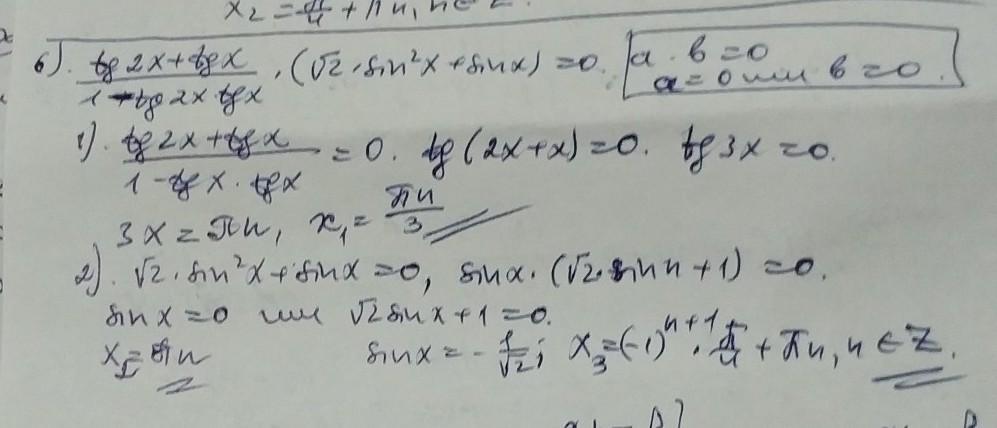 x₂ = π/4 + πn, n ∈ Z.
6). (tg 2x + tg x)/(1 - tg 2x tg x) · (√2 · sin²x + sin x) = 0. a · b = 0
a = 0 или b = 0.
1). (tg 2x + tg x)/(1 - tg x · tg x) = 0. tg (2x + x) = 0. tg 3x = 0.
3x = πn, x₁ = πn/3
2). √2 · sin²x + sin x = 0, sin x · (√2 · sin n + 1) = 0.
sin x = 0 или √2 sin x + 1 = 0.
x₂ = πn sin x = - 1/√2; x₃ = (-1)ⁿ⁺¹ · π/4 + πn, n ∈ Z.